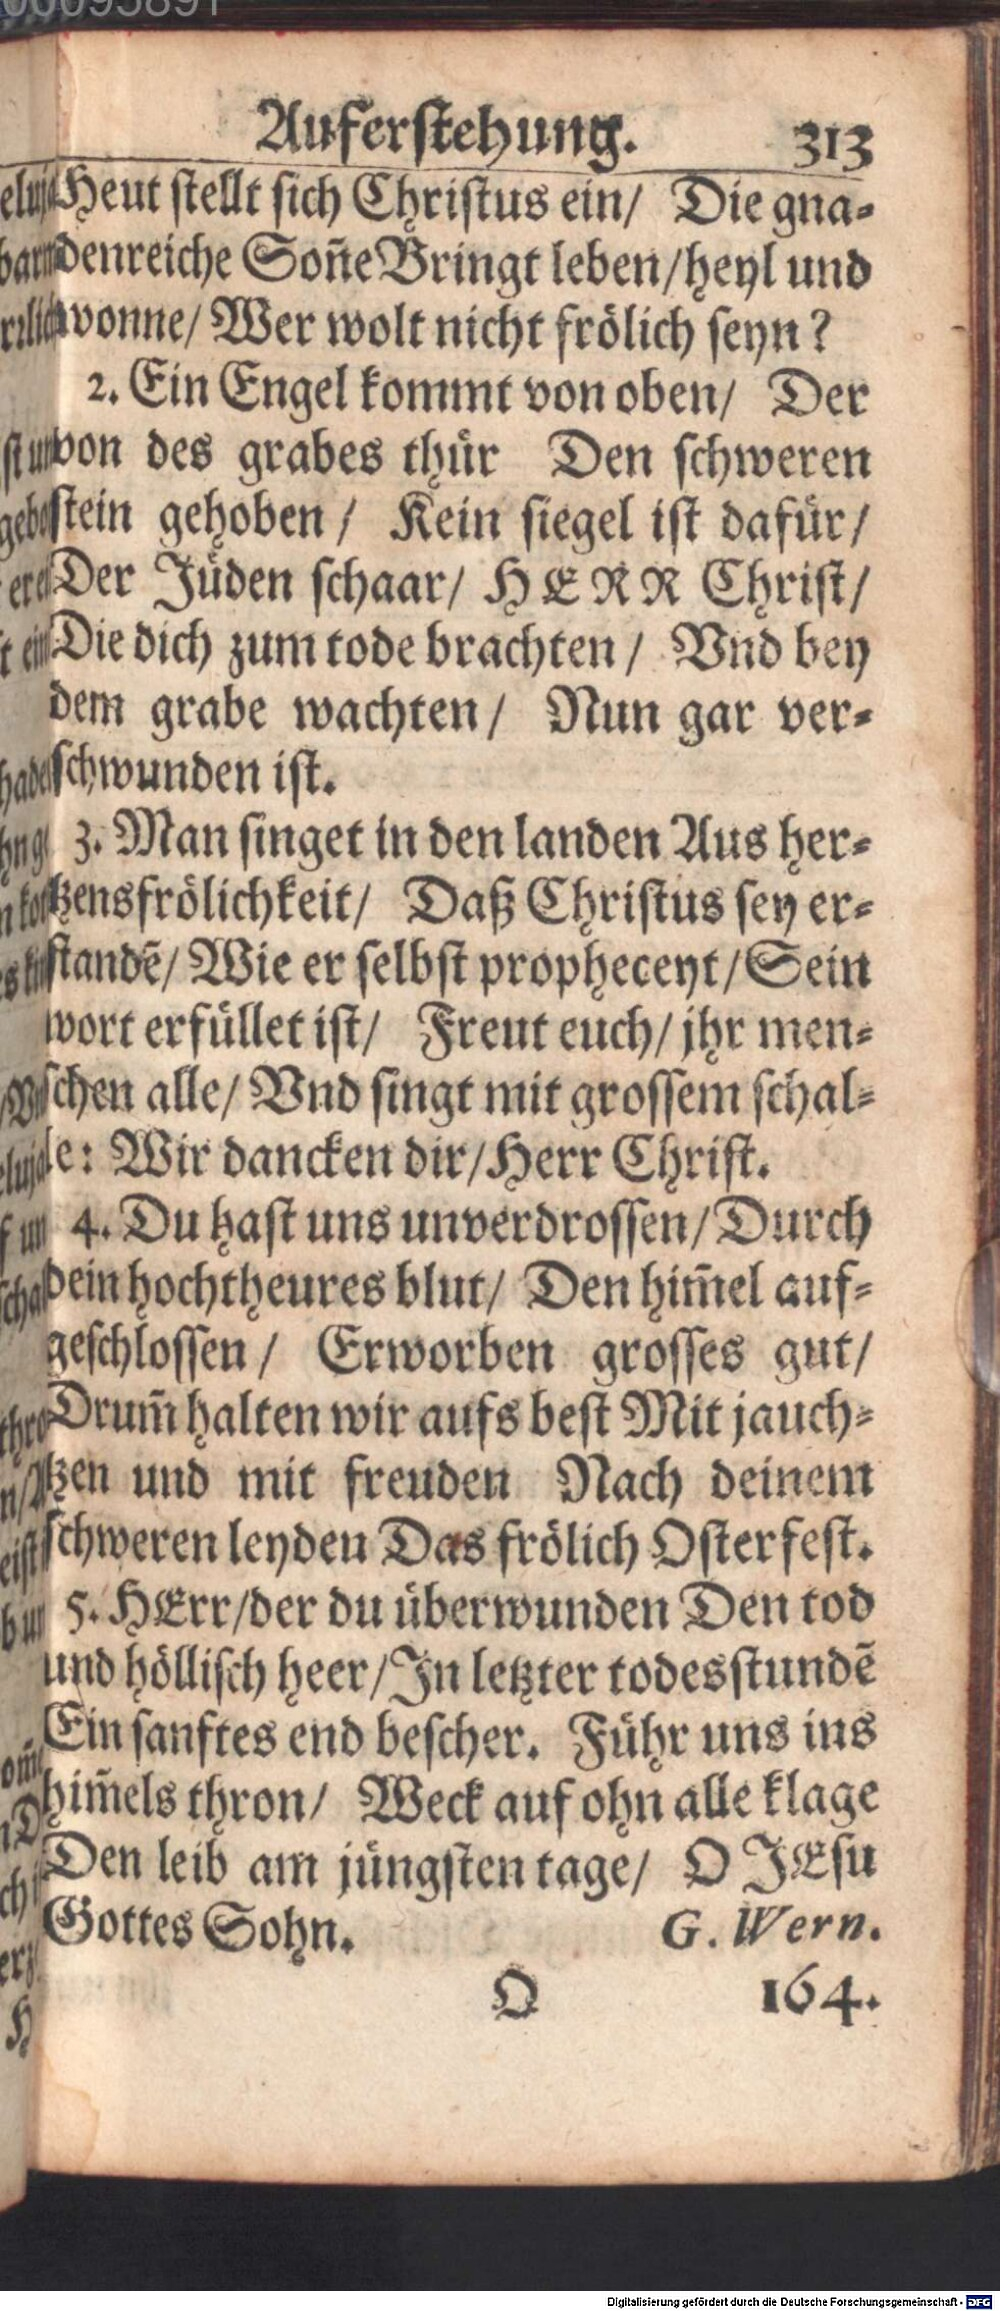 Auferſtehung. 313
Heut ſtellt ſich Chriſtus ein/ Die gna⸗
denreiche Soñe Bringt leben/heyl und
wonne/ Wer wolt nicht frölich ſeyn?
2. Ein Engel kommt von oben/ Der
von des grabes thür Den ſchweren
ſtein gehoben/ Kein ſiegel iſt dafür/
Der Jüden ſchaar/ HERR Chriſt/
Die dich zum tode brachten/ Vnd bey
dem grabe wachten/ Nun gar ver⸗
ſchwunden iſt.
3. Man ſinget in den landen Aus her⸗
tzensfrölichkeit/ Daß Chriſtus ſey er⸗
ſtandẽ/ Wie er ſelbſt propheceyt/Sein
wort erfüllet iſt/ Freut euch/ jhr men⸗
ſchen alle/ Vnd ſingt mit groſſem ſchal⸗
le: Wir dancken dir/Herr Chriſt.
4. Du haſt uns unverdroſſen/Durch
dein hochtheures blut/ Den him̃el auf⸗
geſchloſſen/ Erworben groſſes gut/
Drum̃ halten wir aufs beſt Mit jauch⸗
tzen und mit freuden Nach deinem
ſchweren leyden Das frölich Oſterfeſt.
5. HErr/der du überwunden Den tod
und höllisch heer/In letzter todesſtundẽ
Ein ſanftes end beſcher. Führ uns ins
him̃els thron/ Weck auf ohn alle klage
Den leib am jüngſten tage/ O JEſu
Gottes Sohn. G. Wern.
O 164.
Digitalisierung gefördert durch die Deutsche Forschungsgemeinschaft - DFG